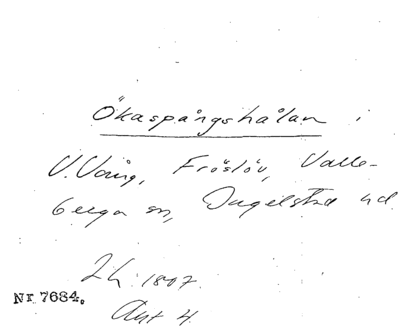 Ökaspångshålan i
V. Vång, Fröslöv, Valle-
berga sn, Ingelstad hd
Lh. 1807.
Nr 7684.
Akt 4.